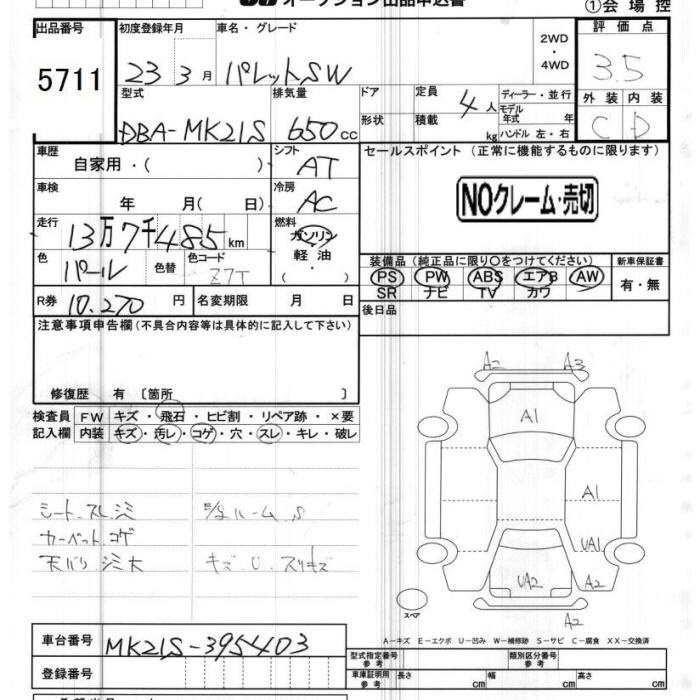 オークション出品申込書
①会場控
出品番号 初度登録年月 車名・グレード 評価点
5711 23 3月 パレットSW 2WD・4WD 3.5
型式 排気量 ドア 定員 4人 ディーラー・並行 外装 内装
DBA-MK21S 650cc 形状 積載 kg モデル年式 年 ハンドル 左・右 C D
車歴 シフト セールスポイント (正常に機能するものに限ります)
自家用・( ) AT
車検 冷房
年 月( 日) AC
NOクレーム・売切
走行 燃料
13万7千485km ガソリン
軽油
・( )
色 色替 色コード
パール Z7T
装備品 (純正品に限り〇をつけてください) 新車保証書
PS PW ABS エアB AW 有・無
SR ナビ TV カワ
R券 10.270円 名変期限 月 日
後日品
注意事項申告欄 (不具合内容等は具体的に記入して下さい)
修復歴 有 〔箇所 〕
検査員 FW キズ・飛石・ヒビ割・リペア跡・×要
記入欄 内装 キズ・汚レ・コゲ・穴・スレ・キレ・破レ
A2 A3
A1
A1
UA1
UA2 A2
A2
スペア
シート スレ シミ
ルーム S
カーペット コゲ
天バリ シミ大 キズ U スリキズ
A-キズ E-エクボ U-凹み W-補修跡 S-サビ C-腐食 XX-交換済
車台番号 MK21S-395403
型式指定番号 参考 類別区分番号 参考
登録番号 車庫証明用 参考 長さ cm 幅 cm 高さ cm